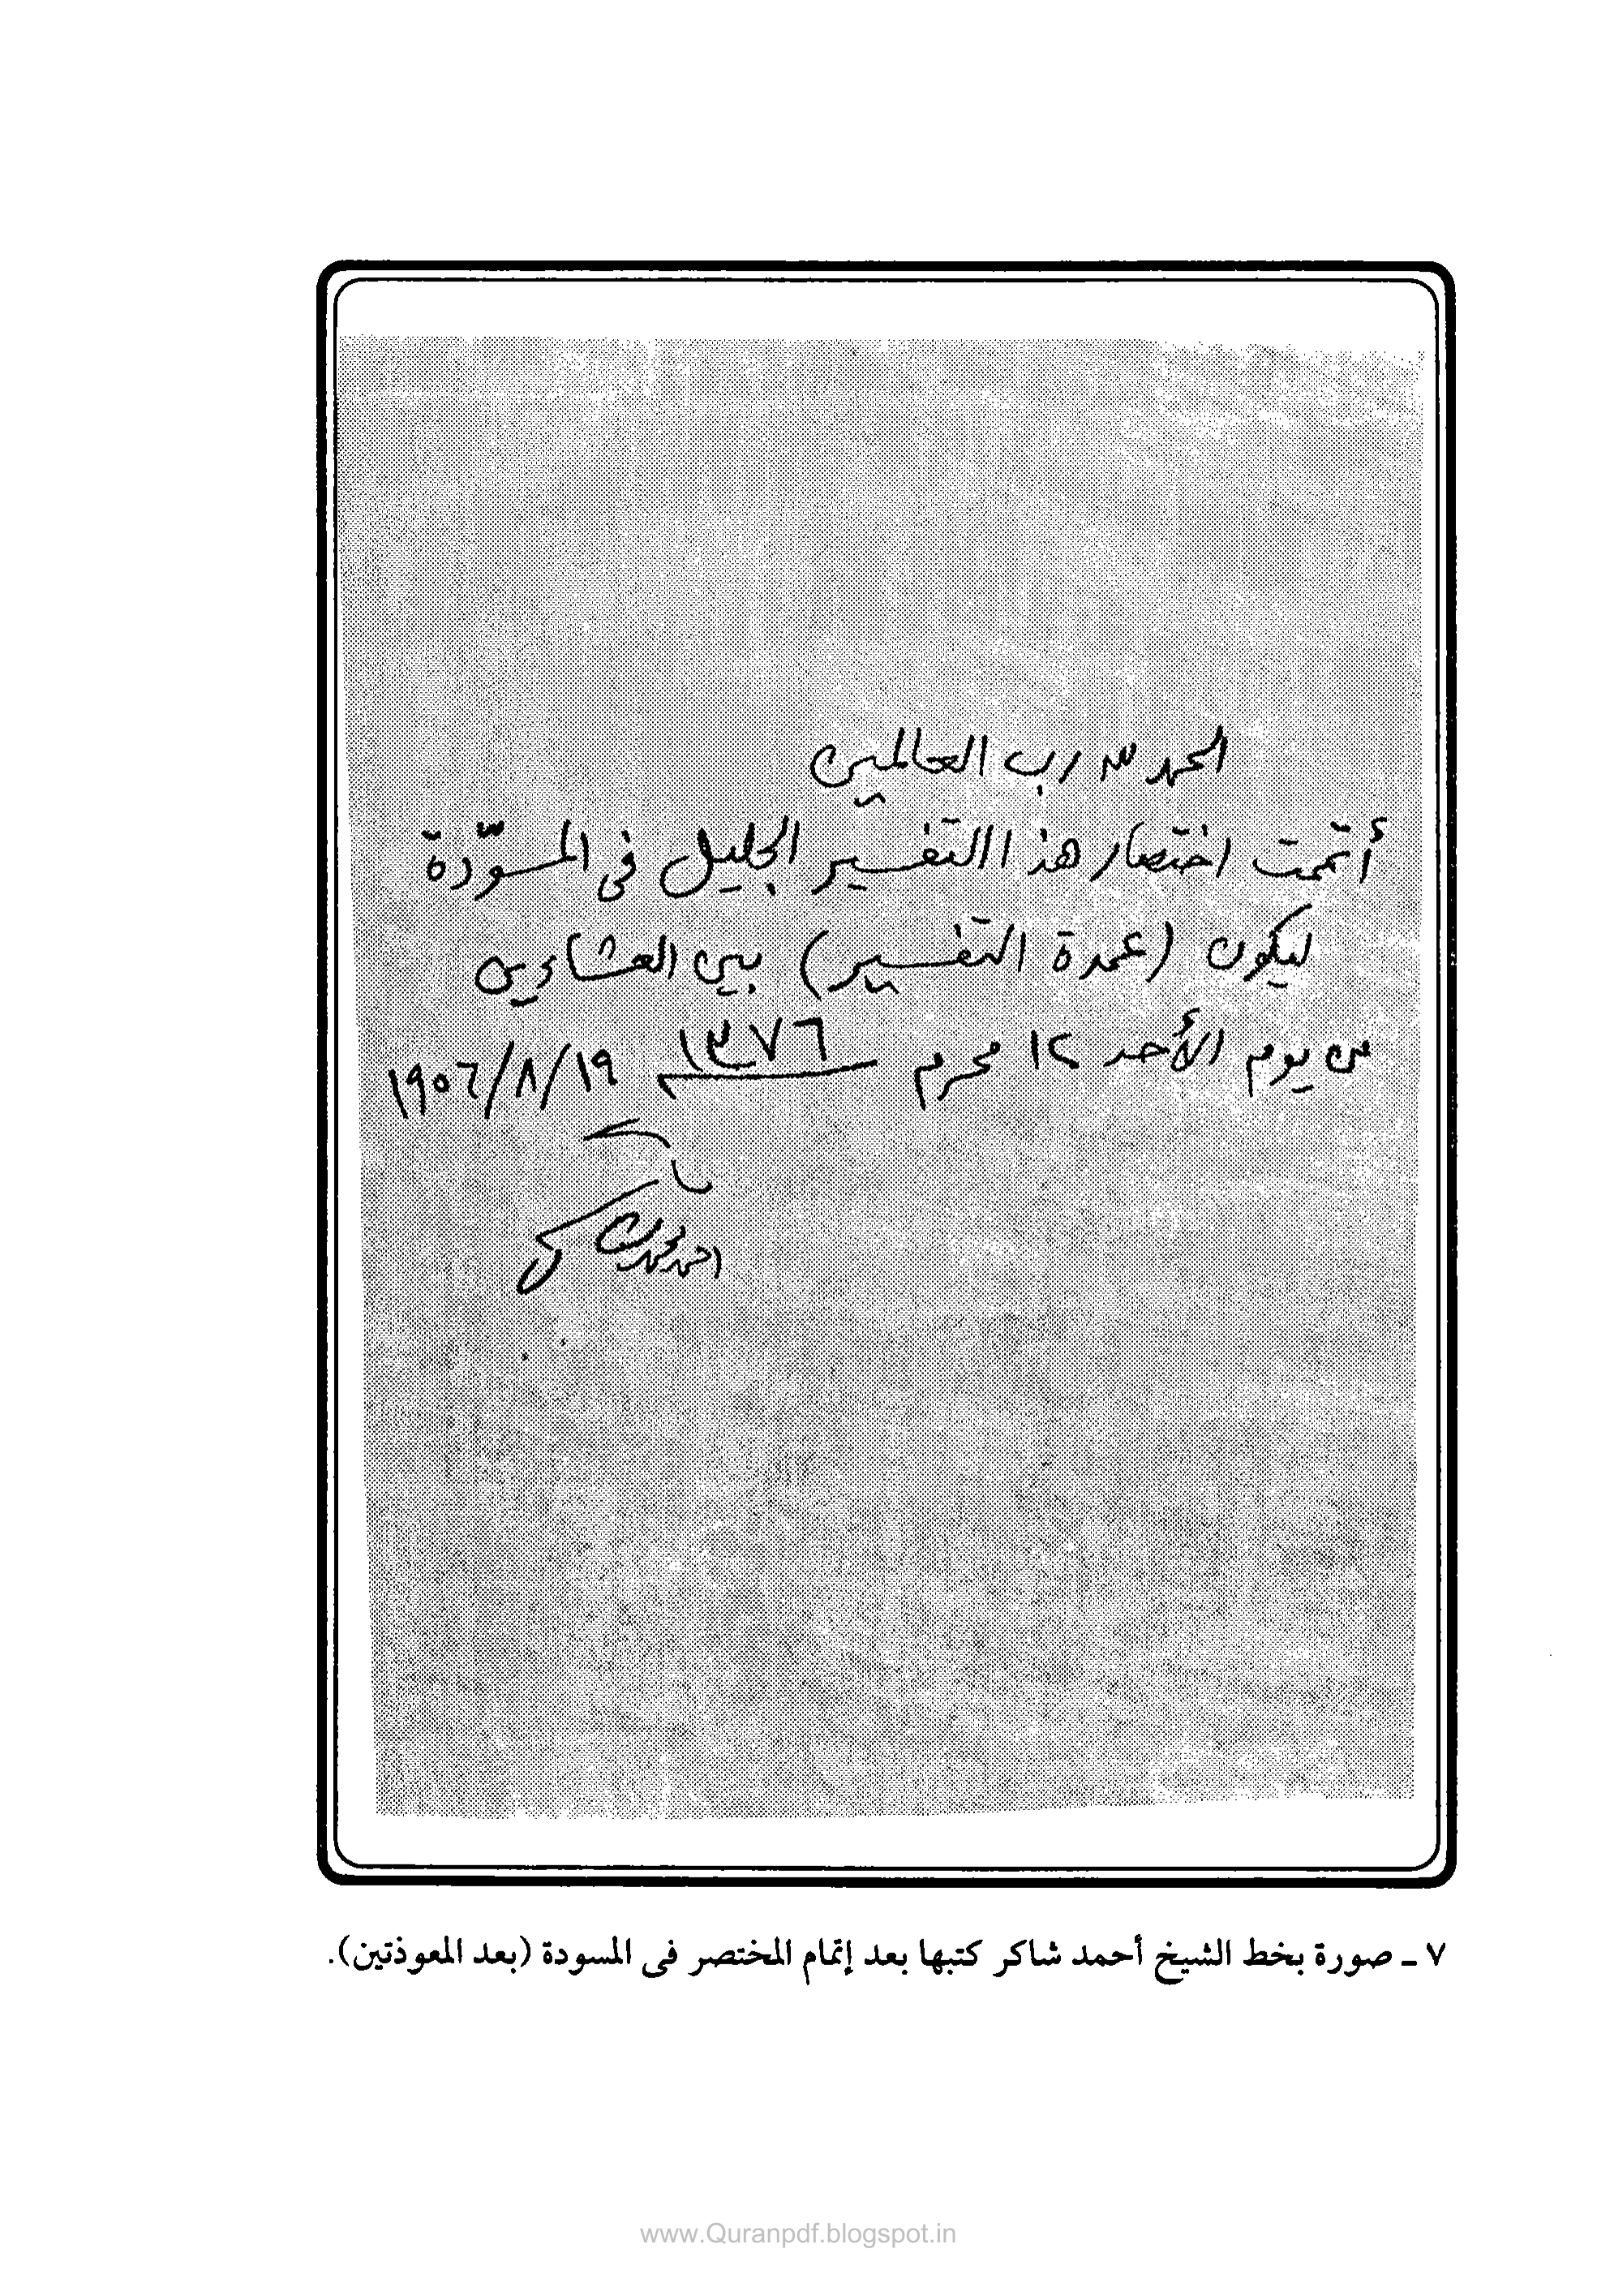 الحمد لله رب العالمين
أتممت اختصار هذا التفسير الجليل فى المسوّدة
ليكون (عمدة التفسير) بين العشاءين
من يوم الأحد ١٢ محرم ١٣٧٦ ١٩/٨/١٩٥٦
احمد محمد شاكر
٧ ـ صورة بخط الشيخ أحمد شاكر كتبها بعد إتمام المختصر فى المسودة (بعد المعوذتين).
www.Quranpdf.blogspot.in